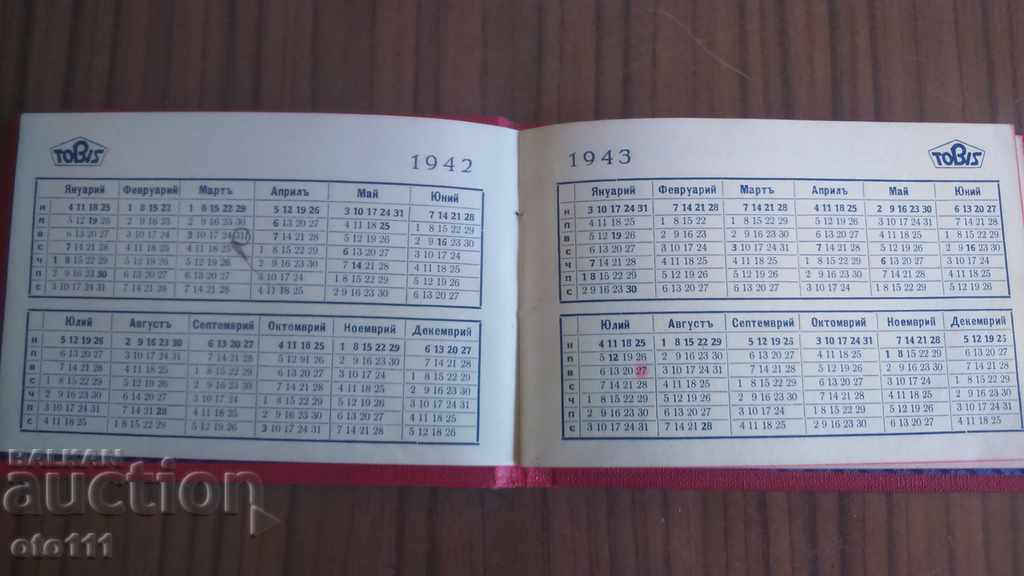 TOBIS
1942
Януарий Февруарий Мартъ Априлъ Май Юний
н 4 11 18 25 1 8 15 22 1 8 15 22 29 5 12 19 26 3 10 17 24 31 7 14 21 28
п 5 12 19 26 2 9 16 23 2 9 16 23 30 6 13 20 27 4 11 18 25 1 8 15 22 29
в 6 13 20 27 3 10 17 24 3 10 17 24 31 7 14 21 28 5 12 19 26 2 9 16 23 30
с 7 14 21 28 4 11 18 25 4 11 18 25 1 8 15 22 29 6 13 20 27 3 10 17 24
ч 1 8 15 22 29 5 12 19 26 5 12 19 26 2 9 16 23 30 7 14 21 28 4 11 18 25
п 2 9 16 23 30 6 13 20 27 6 13 20 27 3 10 17 24 1 8 15 22 29 5 12 19 26
с 3 10 17 24 31 7 14 21 28 7 14 21 28 4 11 18 25 2 9 16 23 30 6 13 20 27
Юлий Августъ Септемврий Октомврий Ноемврий Декемврий
н 5 12 19 26 2 9 16 23 30 6 13 20 27 4 11 18 25 1 8 15 22 29 6 13 20 27
п 6 13 20 27 3 10 17 24 31 7 14 21 28 5 12 91 26 2 9 16 23 30 7 14 21 28
в 7 14 21 28 4 11 18 25 1 8 15 22 29 6 13 20 27 3 10 17 24 1 8 15 22 29
с 1 8 15 22 29 5 12 19 26 2 9 16 23 30 7 14 21 28 4 11 18 25 2 9 16 23 30
ч 2 9 16 23 30 6 13 20 27 3 10 17 24 1 8 15 22 29 5 12 19 26 3 10 17 24 31
п 3 10 17 24 31 7 14 21 28 4 11 18 25 2 9 16 23 30 6 13 20 27 4 11 18 25
с 4 11 18 25 1 8 15 22 29 5 12 19 26 3 10 17 24 31 7 14 21 28 5 12 18 26
1943
TOBIS
Януарий Февруарий Мартъ Априлъ Май Юний
н 3 10 17 24 31 7 14 21 28 7 14 21 28 4 11 18 25 2 9 16 23 30 6 13 20 27
п 4 11 18 25 1 8 15 22 1 8 15 22 29 5 12 19 26 3 10 17 24 31 7 14 21 28
в 5 12 19 26 2 9 16 23 2 9 16 23 30 6 13 20 27 4 11 18 25 1 8 15 22 29
с 6 13 20 27 3 10 17 24 3 10 17 24 31 7 14 21 28 5 12 19 26 2 9 16 23 30
ч 7 14 21 28 4 11 18 25 4 11 18 25 1 8 15 22 29 6 13 20 27 3 10 17 24
п 1 8 15 22 29 5 12 19 26 5 12 19 26 2 9 16 23 30 7 14 21 28 4 11 18 25
с 2 9 16 23 30 6 13 20 27 6 13 20 27 3 10 17 24 1 8 15 22 29 5 12 19 26
Юлий Августъ Септемврий Октомврий Ноемврий Декемврий
н 4 11 18 25 1 8 15 22 29 5 12 19 26 3 10 17 24 31 7 14 21 28 5 12 19 26
п 5 12 19 26 2 9 16 23 30 6 13 20 27 4 11 18 25 1 8 15 22 29 6 13 20 27
в 6 13 20 27 3 10 17 24 31 7 14 21 28 5 12 19 26 2 9 16 23 30 7 14 21 28
с 7 14 21 28 4 11 18 25 1 8 15 22 29 6 13 20 27 3 10 17 24 1 8 15 22 29
ч 1 8 15 22 29 5 12 19 26 2 9 16 23 30 7 14 21 28 4 11 18 25 2 9 16 23 30
п 2 9 16 23 30 6 13 20 27 3 10 17 24 1 8 15 22 29 5 12 19 26 3 10 17 24 31
с 3 10 17 24 31 7 14 21 28 4 11 18 25 2 9 16 23 30 6 13 20 27 4 11 18 25
BALKAN
auction
oto111